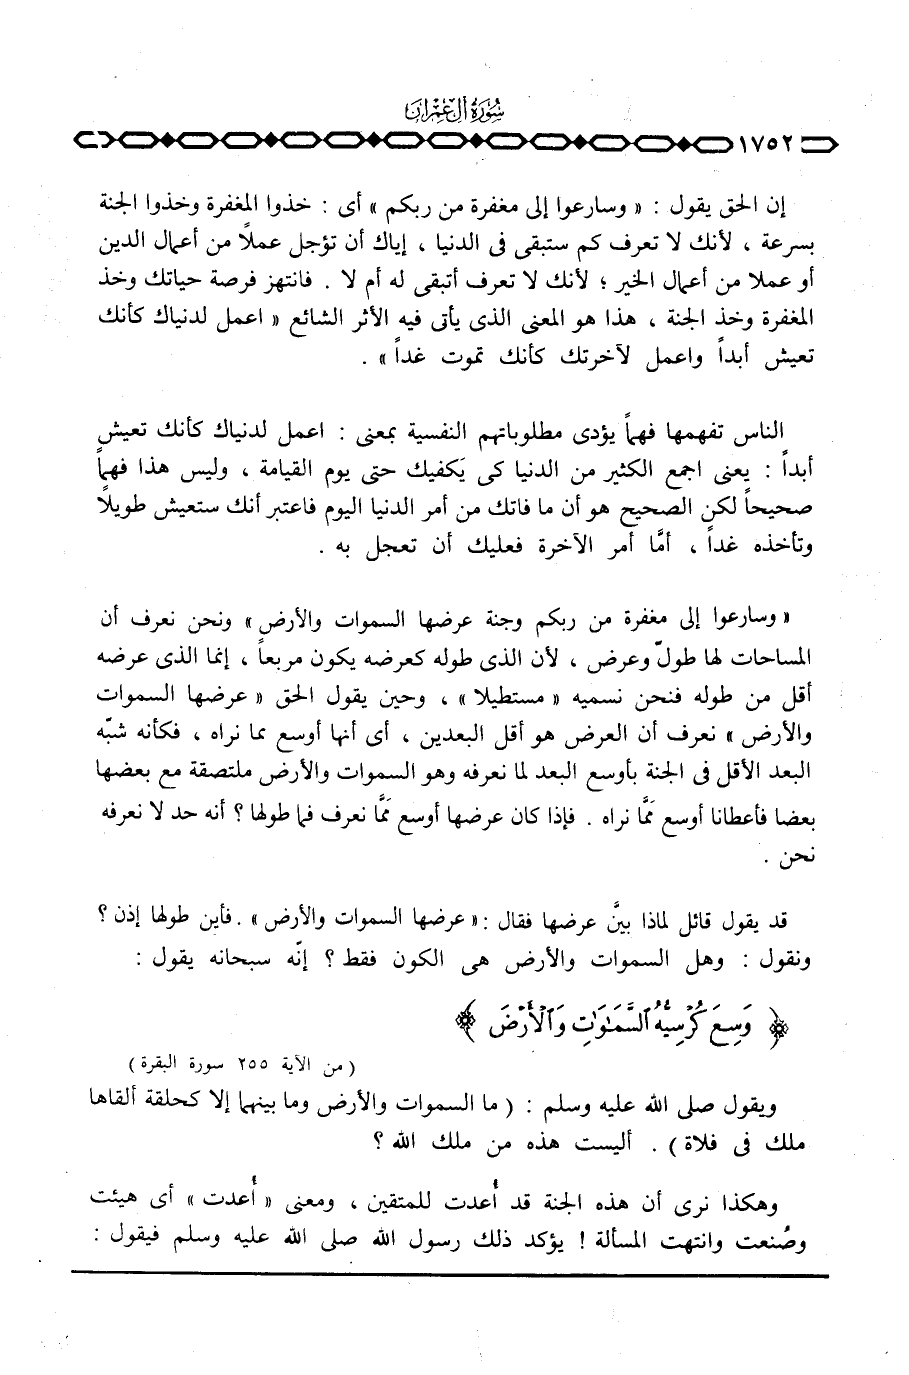 سُورَةُ آلِ عِمْرَانَ
١٧٥٢
إن الحق يقول : « وسارعوا إلى مغفرة من ربكم » أى : خذوا المغفرة وخذوا الجنة
بسرعة ، لأنك لا تعرف كم ستبقى فى الدنيا ، إياك أن تؤجل عملاً من أعمال الدين
أو عملا من أعمال الخير ؛ لأنك لا تعرف أتبقى له أم لا . فانتهز فرصة حياتك وخذ
المغفرة وخذ الجنة ، هذا هو المعنى الذى يأتى فيه الأثر الشائع « اعمل لدنياك كأنك
تعيش أبداً واعمل لآخرتك كأنك تموت غداً » .
الناس تفهمها فهماً يؤدى مطلوباتهم النفسية بمعنى : اعمل لدنياك كأنك تعيش
أبداً : يعنى اجمع الكثير من الدنيا كى يَكفيك حتى يوم القيامة ، وليس هذا فهماً
صحيحاً لكن الصحيح هو أن ما فاتك من أمر الدنيا اليوم فاعتبر أنك ستعيش طويلاً
وتأخذه غداً ، أمَّا أمر الآخرة فعليك أن تعجل به .
« وسارعوا إلى مغفرة من ربكم وجنة عرضها السموات والأرض » ونحن نعرف أن
المساحات لها طولٌ وعرض ، لأن الذى طوله كعرضه يكون مربعاً ، إنما الذى عرضه
أقل من طوله فنحن نسميه « مستطيلا » ، وحين يقول الحق « عرضها السموات
والأرض » نعرف أن العرض هو أقل البعدين ، أى أنها أوسع مما نراه ، فكأنه شبّه
البعد الأقل فى الجنة بأوسع البعد لما نعرفه وهو السموات والأرض ملتصقة مع بعضها
بعضا فأعطانا أوسع مَمَّا نراه . فإذا كان عرضها أوسع مَمَّا نعرف فما طولها ؟ أنه حد لا نعرفه
نحن .
قد يقول قائل لماذا بينَّ عرضها فقال : « عرضها السموات والأرض » . فأين طولها إذن ؟
ونقول : وهل السموات والأرض هى الكون فقط ؟ إنّه سبحانه يقول :
﴿ وَسِعَ كُرْسِيُّهُ السَّمَٰوَٰتِ وَٱلْأَرْضَ ﴾
( من الآية ٢٥٥ سورة البقرة )
ويقول صلى الله عليه وسلم : ( ما السموات والأرض وما بينهما إلا كحلقة ألقاها
ملك فى فلاة ) . أليست هذه من ملك الله ؟
وهكذا نرى أن هذه الجنة قد أُعدت للمتقين ، ومعنى « أُعدت » أى هيئت
وصُنعت وانتهت المسألة ! يؤكد ذلك رسول الله صلى الله عليه وسلم فيقول :